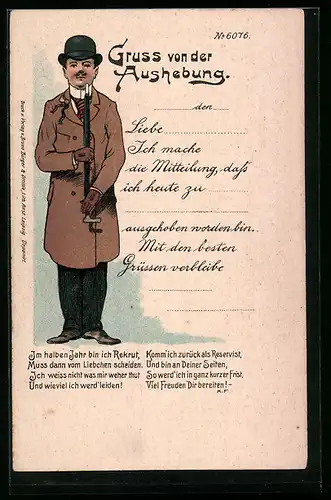 No 6076.
Gruss von der
Aushebung.
den
Liebe
Ich mache
die Mitteilung, daß
ich heute zu
ausgehoben worden bin.
Mit den besten
Grüssen verbleibe
Im halben Jahr bin ich Rekrut,
Muss dann vom Liebchen scheiden.
Ich weiss nicht was mir weher thut
Und wieviel ich werd' leiden!
Komm' ich zurück als Reservist,
Und bin an Deiner Seiten,
So werd' ich in ganz kurzer Frist,
Viel Freuden Dir bereiten! –
Druck u. Verlag v. Bruno Bürger & Ottillie, Lith. Anst. Leipzig